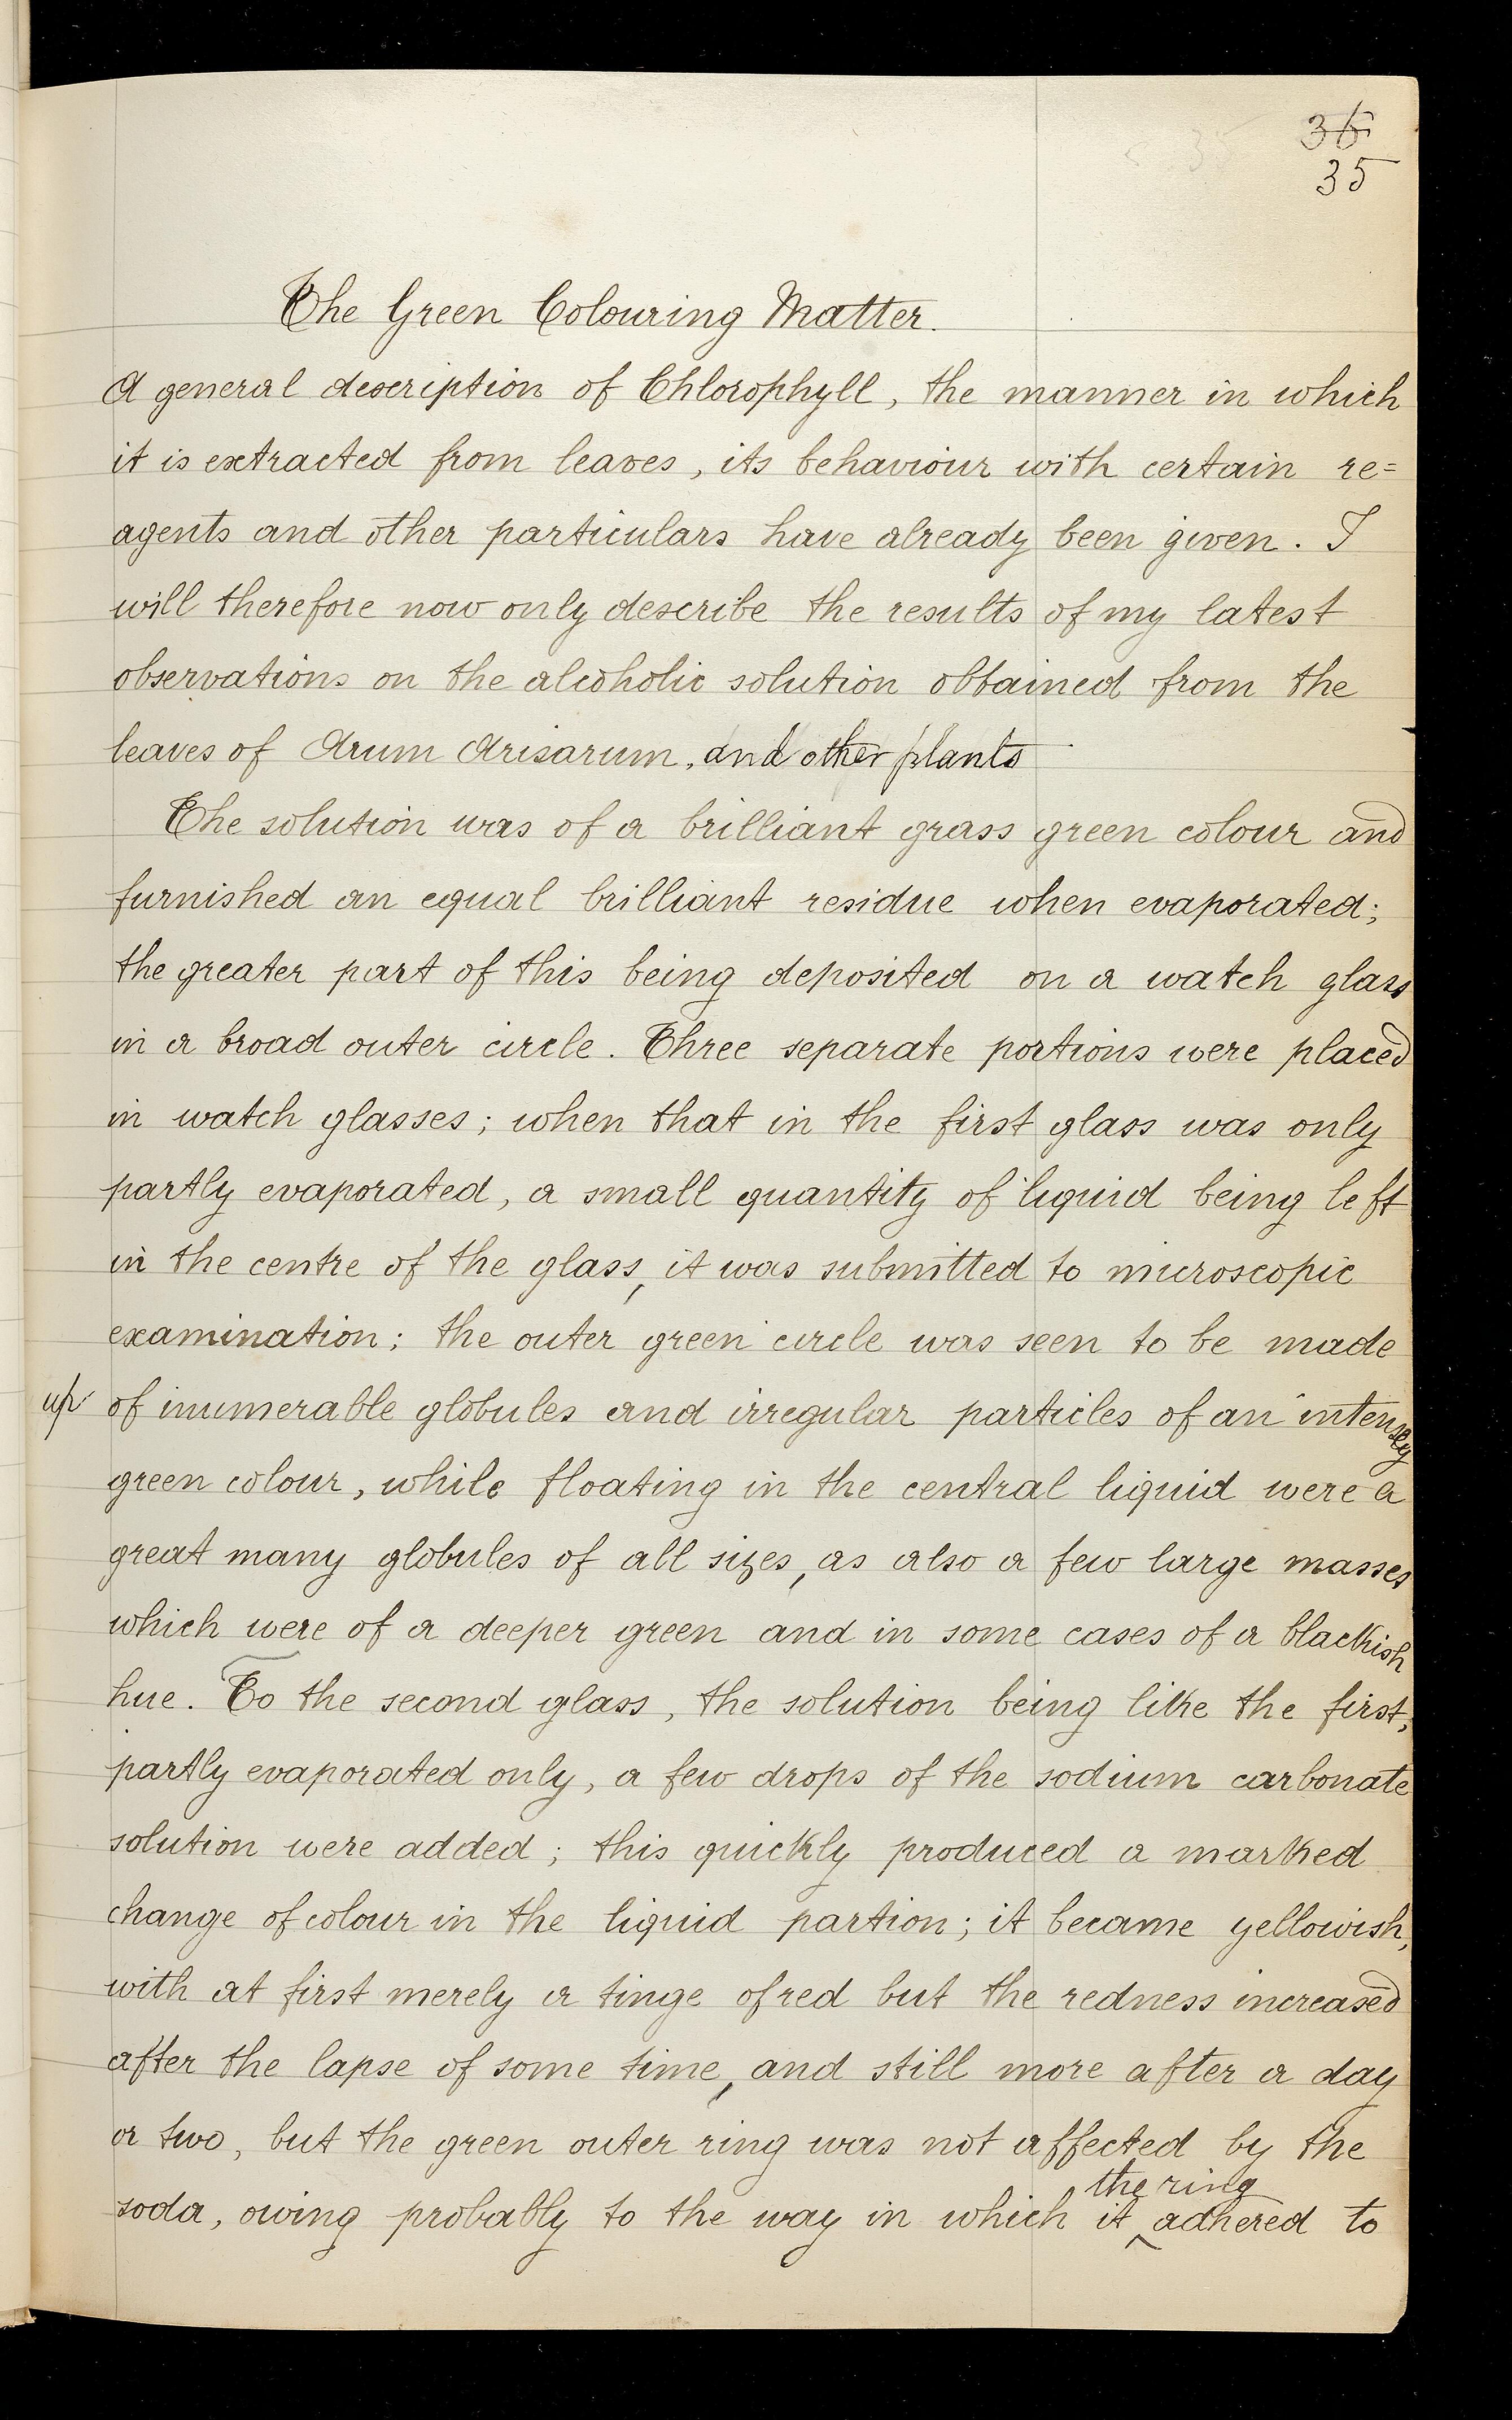 36
35
The Green Colouring Matter.
A general description of Chlorophyll, the manner in which
it is extracted from leaves, its behaviour with certain re=
agents and other particulars have already been given. I
will therefore now only describe the results of my latest
observations on the alcoholic solution obtained from the
leaves of Arum Arisarum, and other plants
The solution was of a brilliant grass green colour and
furnished an equal brilliant residue when evaporated;
the greater part of this being deposited on a watch glass
in a broad outer circle. Three separate portions were placed
in watch glasses; when that in the first glass was only
partly evaporated, a small quantity of liquid being left
in the centre of the glass, it was submitted to microscopic
examination; the outer green circle was seen to be made
up of inumerable globules and irregular particles of an intensey
green colour, while floating in the central liquid were a
great many globules of all sizes, as also a few large masses
which were of a deeper green and in some cases of a blackish
hue. To the second glass, the solution being like the first,
partly evaporated only, a few drops of the sodium carbonate
solution were added; this quickly produced a marked
change of colour in the liquid partion; it became yellowish,
with at first merely a tinge of red but the redness increased
after the lapse of some time, and still more after a day
or two, but the green outer ring was not affected by the
the ring
soda, owing probably to the way in which it adhered to